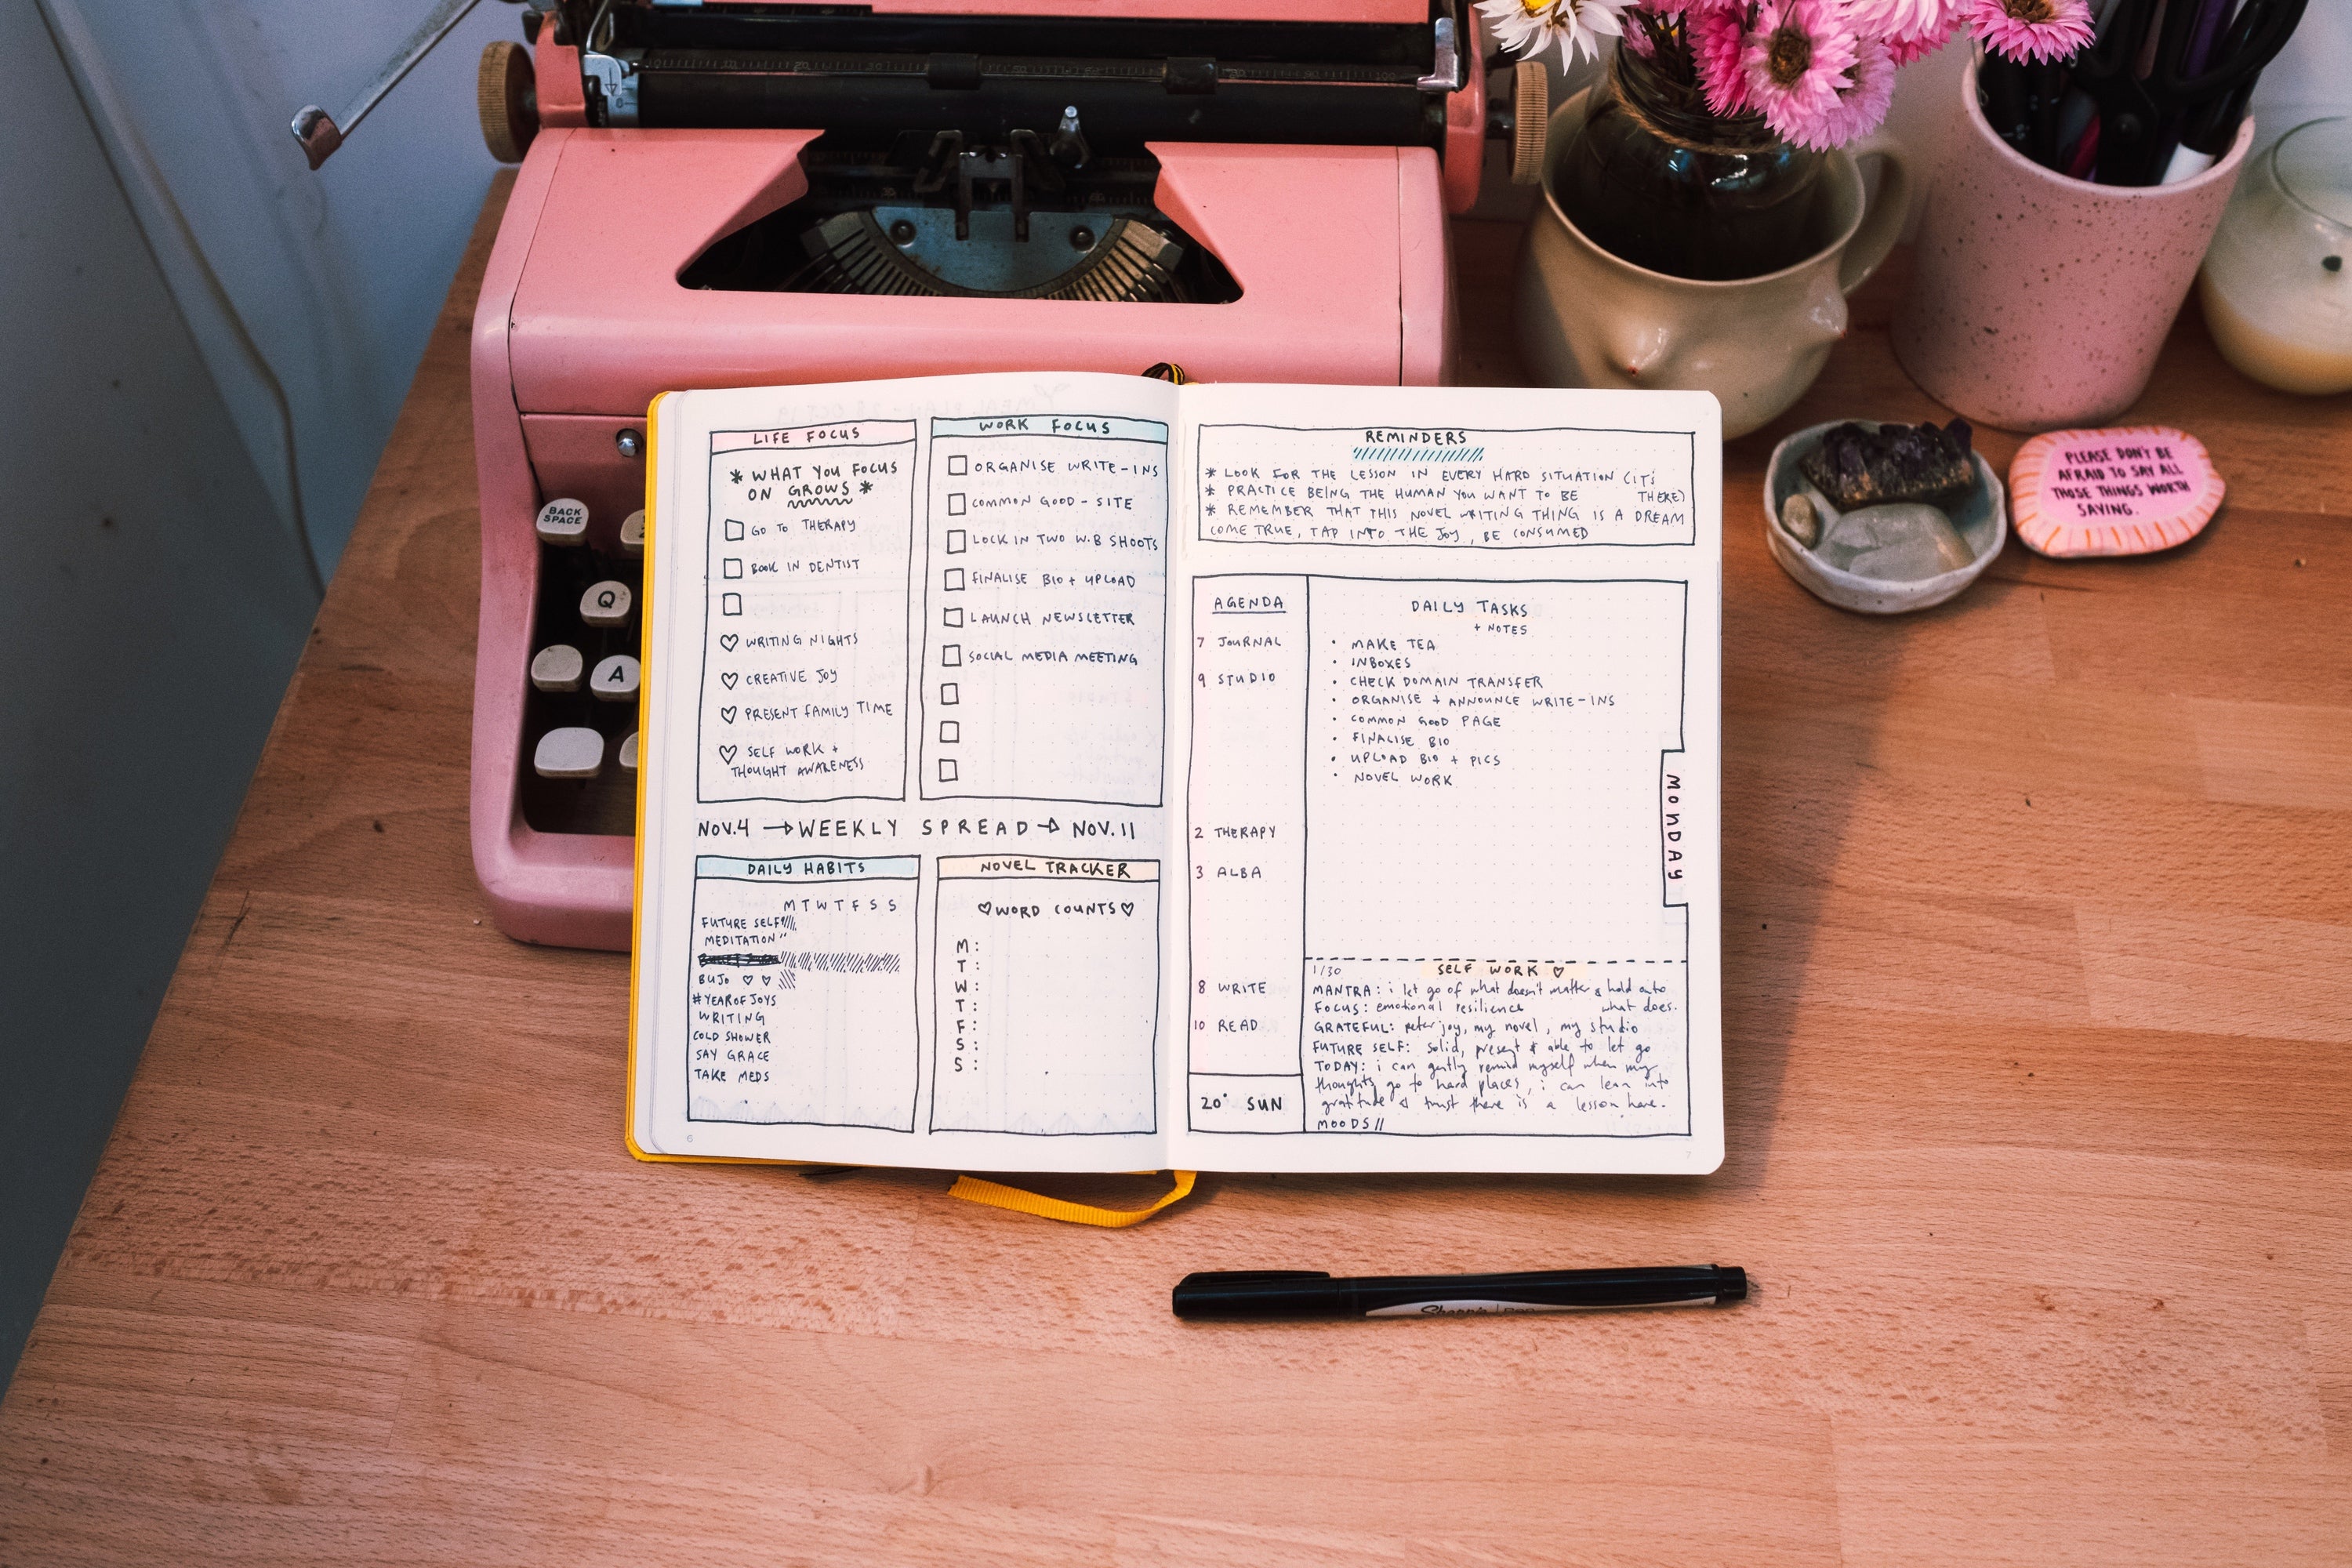 LIFE FOCUS
* WHAT YOU FOCUS
ON GROWS *
GO TO THERAPY
BOOK IN DENTIST
WRITING NIGHTS
CREATIVE JOY
PRESENT FAMILY TIME
SELF WORK +
THOUGHT AWARENESS
WORK FOCUS
ORGANISE WRITE-INS
COMMON GOOD - SITE
LOCK IN TWO W.B SHOOTS
FINALISE BIO + UPLOAD
LAUNCH NEWSLETTER
SOCIAL MEDIA MEETING
NOV.4 → WEEKLY SPREAD → NOV.11
DAILY HABITS
M T W T F S S
FUTURE SELF
MEDITATION
BUJO ♡ ♡
#YEAROFJOYS
WRITING
COLD SHOWER
SAY GRACE
TAKE MEDS
NOVEL TRACKER
♡WORD COUNTS♡
M:
T:
W:
T:
F:
S:
S:
6
REMINDERS
* LOOK FOR THE LESSON IN EVERY HARD SITUATION (IT'S
* PRACTICE BEING THE HUMAN YOU WANT TO BE THERE)
* REMEMBER THAT THIS NOVEL WRITING THING IS A DREAM
COME TRUE, TAP INTO THE JOY, BE CONSUMED
AGENDA
7 JOURNAL
9 STUDIO
2 THERAPY
3 ALBA
8 WRITE
10 READ
20° SUN
DAILY TASKS
+ NOTES
• MAKE TEA
• INBOXES
• CHECK DOMAIN TRANSFER
• ORGANISE + ANNOUNCE WRITE-INS
• COMMON GOOD PAGE
• FINALISE BIO
• UPLOAD BIO + PICS
• NOVEL WORK
MONDAY
1/30 SELF WORK ♡
MANTRA: i let go of what doesn't matter & hold onto
FOCUS: emotional resilience what does.
GRATEFUL: joy, my novel, my studio
FUTURE SELF: solid, present & able to let go
TODAY: i can gently remind myself when my
thoughts go to hard places, i can lean into
gratitude & trust there is a lesson here.
MOODS//
7
BACK
SPACE
Q
A
PLEASE DON'T BE
AFRAID TO SAY ALL
THOSE THINGS WORTH
SAYING.
Sharpie | Pen